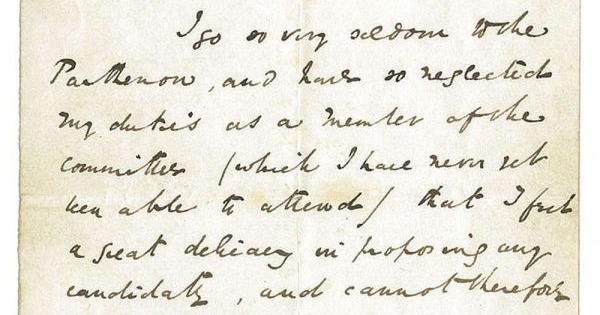 I go so very seldom to the
Parthenon, and have so neglected
my duties as a member of the
committee (which I have never yet
been able to attend) that I feel
a great delicacy in proposing any
candidate, and cannot therefore